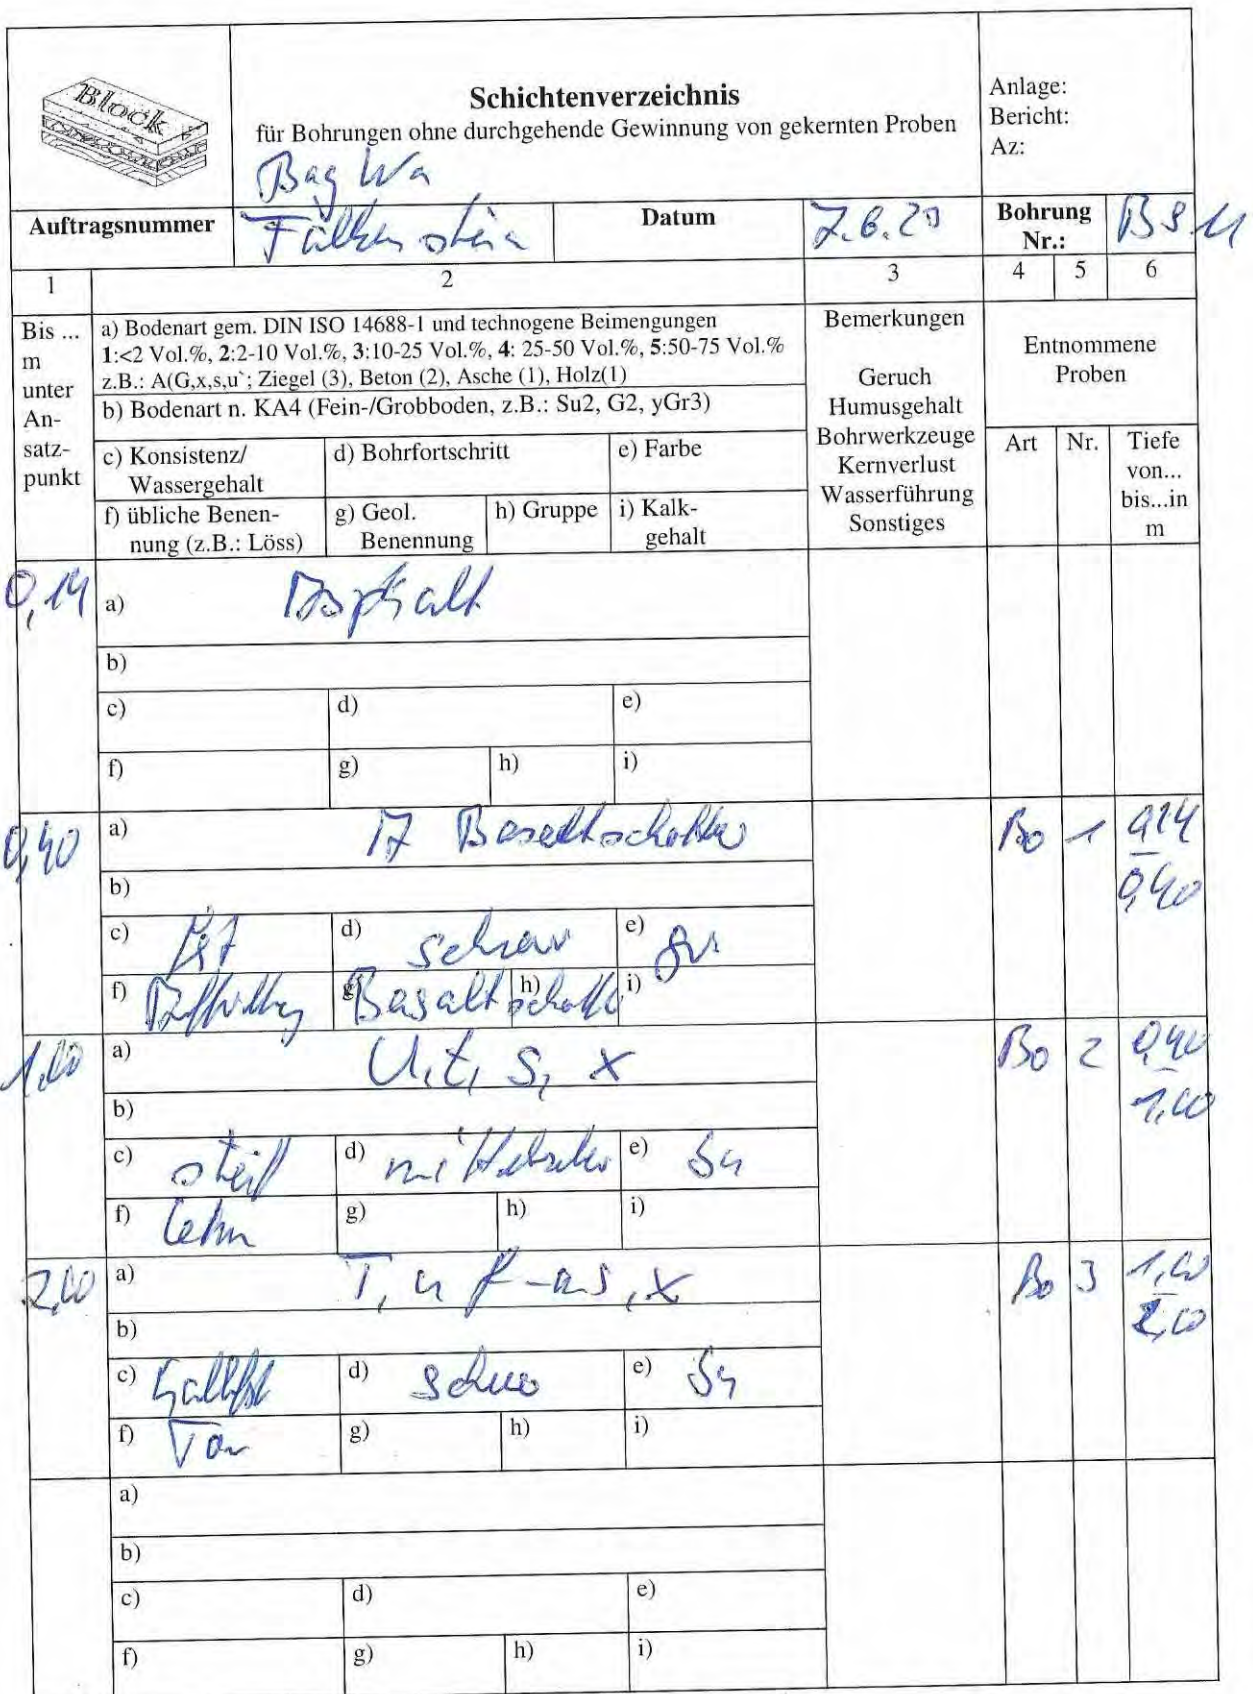 Block
Schichtenverzeichnis
für Bohrungen ohne durchgehende Gewinnung von gekernten Proben
Anlage:
Bericht:
Az:
Bag Wa
Auftragsnummer
Falkenstein
Datum
7.6.23
Bohrung
Nr.:
BS 11
1 2 3 4 5 6
Bis ...
m
unter
An-
satz-
punkt
a) Bodenart gem. DIN ISO 14688-1 und technogene Beimengungen
1:<2 Vol.%, 2:2-10 Vol.%, 3:10-25 Vol.%, 4: 25-50 Vol.%, 5:50-75 Vol.%
z.B.: A(G,x,s,u`; Ziegel (3), Beton (2), Asche (1), Holz(1)
b) Bodenart n. KA4 (Fein-/Grobboden, z.B.: Su2, G2, yGr3)
c) Konsistenz/
Wassergehalt
d) Bohrfortschritt
e) Farbe
f) übliche Benen-
nung (z.B.: Löss)
g) Geol.
Benennung
h) Gruppe
i) Kalk-
gehalt
Bemerkungen
Geruch
Humusgehalt
Bohrwerkzeuge
Kernverlust
Wasserführung
Sonstiges
Entnommene
Proben
Art
Nr.
Tiefe
von...
bis...in
m
0,14
a) Asphalt
b)
c) d) e)
f) g) h) i)
0,40
a) Basaltschotter
Bo 1 0,14
-
0,40
b)
c) d) schwer e) gr
f) Auffüllung g) Basaltschotter h) i)
1,00
a) U, t, s, x
Bo 2 0,40
-
1,00
b)
c) steif d) mittelschwer e)
f) Lehm g) h) i)
2,00
a) T, u f-ms, x
Bo 3 1,00
-
2,00
b)
c) halbfest d) schwer e)
f) Ton g) h) i)
a)
b)
c) d) e)
f) g) h) i)